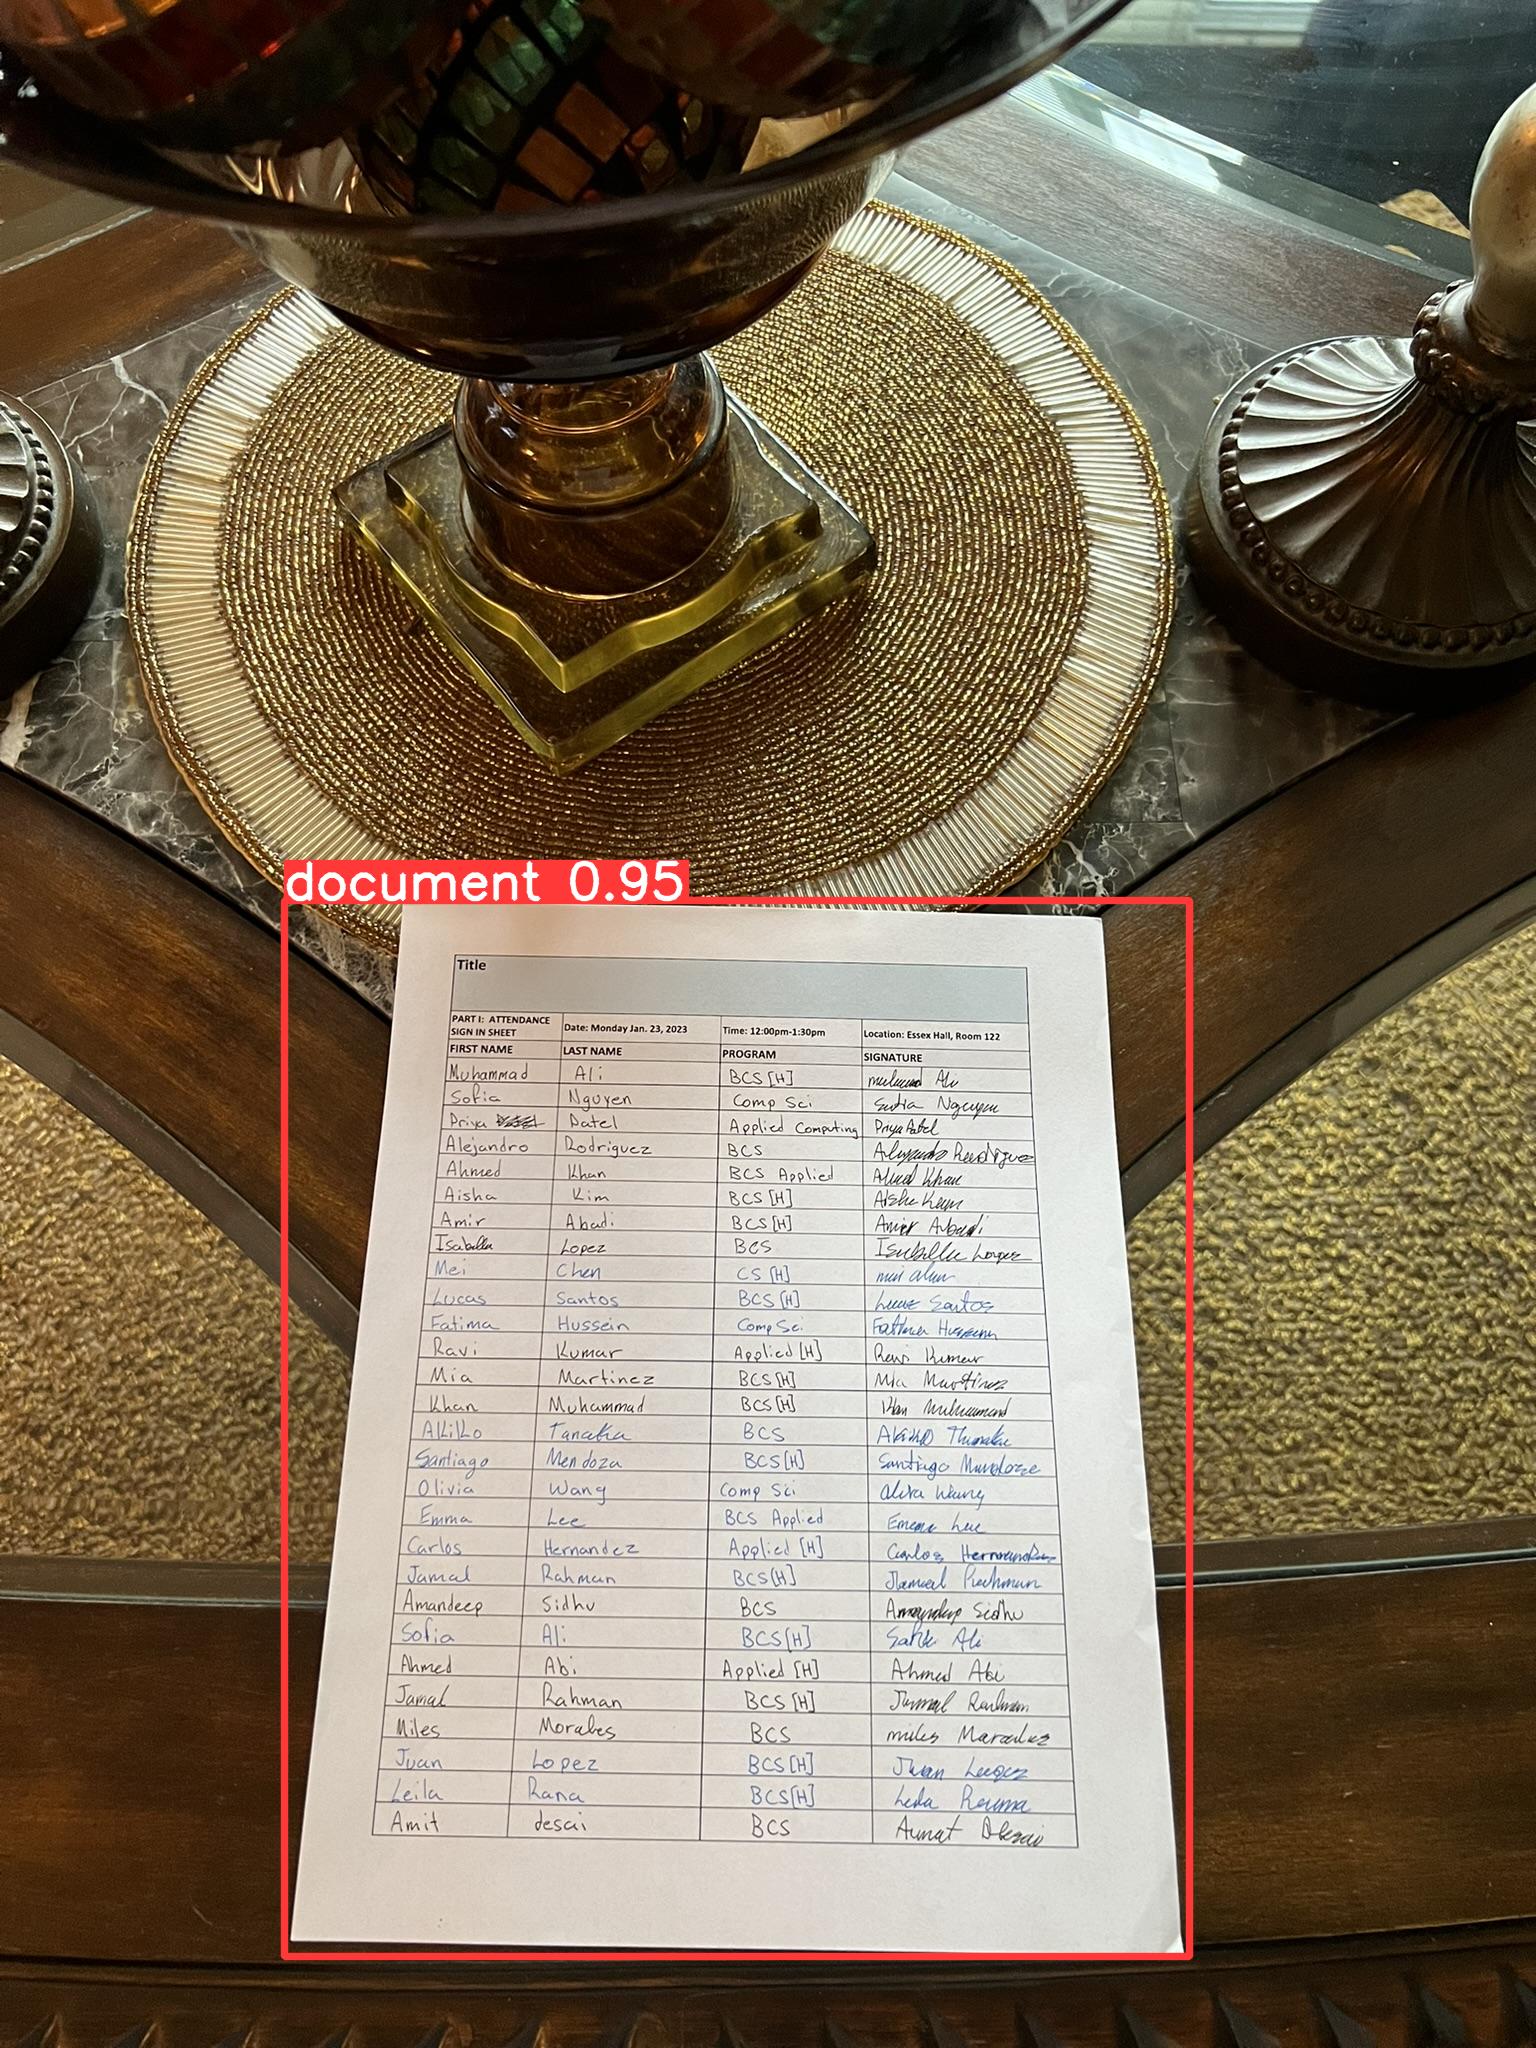 document 0.95
Title
PART I: ATTENDANCE SIGN IN SHEET Date: Monday Jan. 23, 2023 Time: 12:00pm-1:30pm Location: Essex Hall, Room 122
FIRST NAME LAST NAME PROGRAM SIGNATURE
Muhammad Ali BCS [H] Ali
Sofia Nguyen Comp Sci Nguyen
Priya Patel Applied Computing Priya Patel
Alejandro Rodriguez BCS Alejandro Rodriguez
Ahmed Khan BCS Applied Ahmed Khan
Aisha Kim BCS [H] Aisha Kim
Amir Abadi BCS [H] Amir Abadi
Isabella Lopez BCS Isabella Lopez
Mei Chen CS [H]
Lucas Santos BCS [H] Lucas Santos
Fatima Hussein Comp Sci Fatima Hussein
Ravi Kumar Applied [H] Ravi Kumar
Mia Martinez BCS [H] Mia Martinez
Khan Muhammad BCS [H] Khan Muhammad
Akiko Tanaka BCS
Santiago Mendoza BCS [H] Santiago Mendoza
Olivia Wang Comp Sci Wang
Emma Lee BCS Applied Emma Lee
Carlos Hernandez Applied [H] Carlos Hernandez
Jamal Rahman BCS [H] Jamal Rahman
Amandeep Sidhu BCS Amandeep Sidhu
Sofia Ali BCS [H] Ali
Ahmed Abi Applied [H] Ahmed Abi
Jamal Rahman BCS [H] Jamal Rahman
Miles Morales BCS miles
Juan Lopez BCS [H] Juan Lopez
Leila Rana BCS [H]
Amit desai BCS